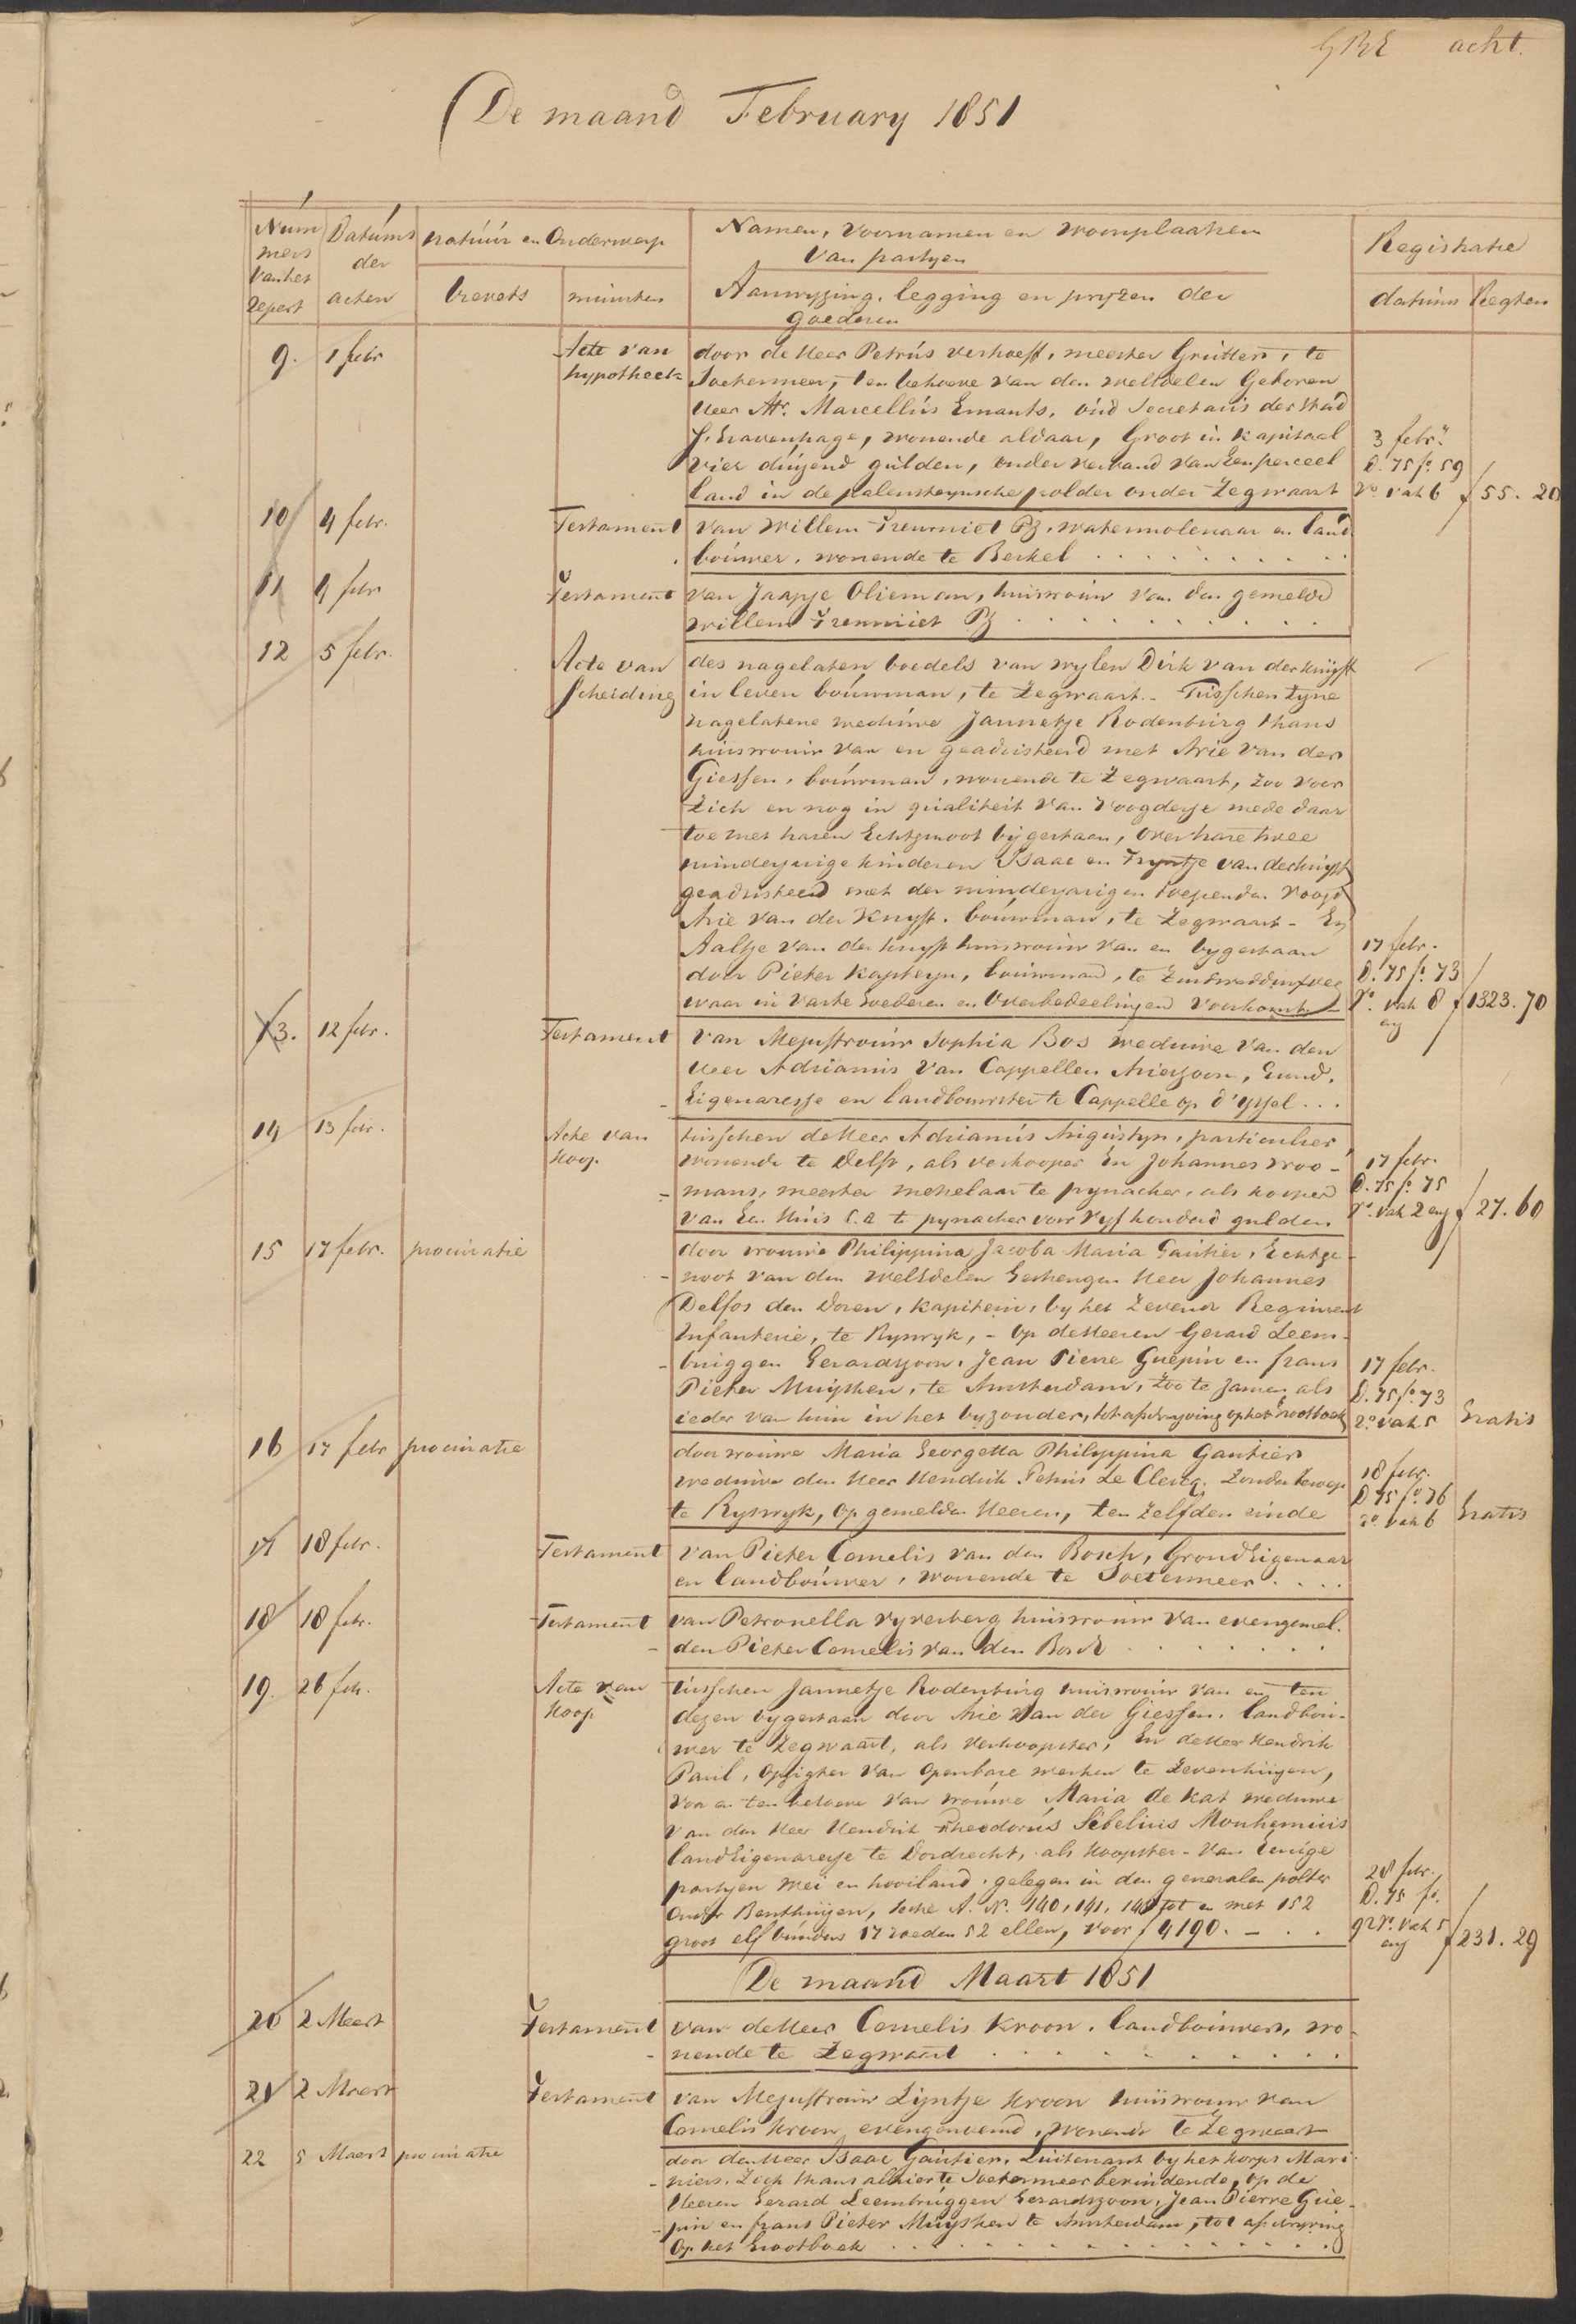 acht.
De maand February 1851
Num
mers
van het
Repert
Datums
der
acten
natúúr en Onderwerp
brevets
minuten
Namen, Voornamen en woonplaatsen
Van partyen
Aanwyzing, legging en pryzen der
goederen
Registratie
datums Regten
9. 1 febr Acte van hypotheek
door de Heer Petrús Verhoeff, meester Grútter, te
Soetermeer, ten behoeve van den weledelen Geboren
Heer Mr. Marcellús Emants, oúd Secretaris der Stad
s'Gravenhage, wonende aldaar, Groot in Kapitaal
vier dúizend gúlden, onder verband van Een perceel
land in de palensteynsche polder onder Zegwaart
3 febr.
D. 75 fo. 59
vo. vak 6 f 55.20
10 4 febr. Testament
van Willem Treurniet Pz, watermolenaar en land
boúwer, wonende te Berkel
11 4 febr Testament
van Jaapje Olieman, huisvroúw van den gemelde
Willem Treurniet Pz
12 5 febr. Acte van Scheiding
des nagelaten boedels van wylen Dirk van der Knyff
in leven boúwman, te Zegwaart. Tússchen zyne
nagelatene wedúwe Jannetje Rodenbúrg thans
huisvroúw van en geadsisteerd met Arie van der
Giessen, boúwman, wonende te Zegwaart, zoo voor
Zich en nog in qúaliteit van Voogdesse mede daar
toe met haren Echtgenoot bygestaan, over hare twee
minderjarige kinderen Isaac en Tryntje van der Knyff
geadsisteerd met der minderjarigen toezienden Voogd
Arie van der Knyff, boúwman, te Zegwaart - En
Aaltje van der Knyff huisvroúw van en bygestaan
door Pieter Kapteyn, boúwman, te
waar in Vaste Goederen en Overbedeelingen Voorkomt
17 febr.
D. 75 fo. 73
vo. vak 8 f 1323.70
13. 12 febr. Testament
van Mejuffroúw Sophia Bos wedúwe van den
Heer Adrianús van Cappellen Arieszoon, Grond,
Eigenaresse en landboúwster te Cappelle op d'yssel ...
14 13 febr. Acte van Koop.
tússchen de Heer Adrianús Aúgústyn, particulier,
wonende te Delft, als verkooper En Johannes Kroo-
mans, meester metselaar te pynacker, als kooper
van Een Húis C.A. te pynacker voor Vyf honderd gulden.
17 febr.
D. 75 fo. 75
ro. vak 2 f 27.60
15 17 febr. procúratie
door vroúwe Philippina Jacoba Maria Gaútier, Echtge-
noot van den weledelen Gestrengen Heer Johannes
Delfos den Doren, kapitein, by het Zevende Regiment
Infanterie, te Ryswyk, - op de Heeren Gerard Leem-
brúggen Gerardszoon, Jean Pierre Guépin en frans
Pieter Múysken, te Amsterdam, zoo te zamen als
ieder van hún in het byzonder, tot afschryving op het Grootboek
17 febr.
D. 75 fo. 73
ro. vak 5 Gratis
16 17 febr procúratie
door vroúwe Maria Georgetta Philippina Gautier
wedúwe den Heer Hendrik Petrús Le Clercq. Zonder beroep
te Ryswyk, op gemelden Heeren, ten Zelfden einde
18 febr.
D 75 fo. 76
ro. vak 6 Gratis
17 18 febr. Testament
van Pieter Cornelis van den Bosch, Grond Eigenaar
en landboúwer, wonende te Soetermeer ....
18 18 febr. Testament
van Petronella Vyverberg huisvroúw van evengemel.
den Pieter Cornelis van den Bosch
19. 26 feb. Acte van Koop.
tússchen Jannetje Rodenbúrg huisvroúw van en ten
dezen bygestaan door Arie van der Giessen, landboú-
wer te Zegwaart, als Verkoopster, En de Heer Hendrik
Paul, Opzigter van Openbare werken te Zevenhúizen,
Voor en ten behoeve van vroúwe Maria de Kat wedúwe
van den Heer Hendrik Theodorús Sibelius Monhemius
land Eigenaresse te Dordrecht, als Koopster - Van Eenige
partyen wei en hooiland, gelegen in den generalen polder
Onder Benthúizen, Sectie A. No. 140, 141, 148 tot en met 152
groot elf búnders 17 roeden 52 ellen, voor f 4190. -
28 febr.
D. 75 fo.
92 vo. vak 5 f 231.29
De maand Maart 1851
20 2 Maart Testament
van de Heer Cornelis Kroon, landboúwer, wo-
nende te Zegwaart
21 2 Maart Testament
van Mejuffroúw Lyntje Kroon huisvroúw van
Cornelis Kroon evengenoemd, wonende te Zegwaart
22 5 Maart procúratie
door den Heer Isaac Gaútier, Lúitenant by het korps Mari-
niers, Zich thans alhier te Soetermeer bevindende, op de
Heeren Gerard Leembrúggen Gerardszoon, Jean Pierre Gúé-
pin en frans Pieter Múysken te Amsterdam, tot afschryving
Op het Grootboek